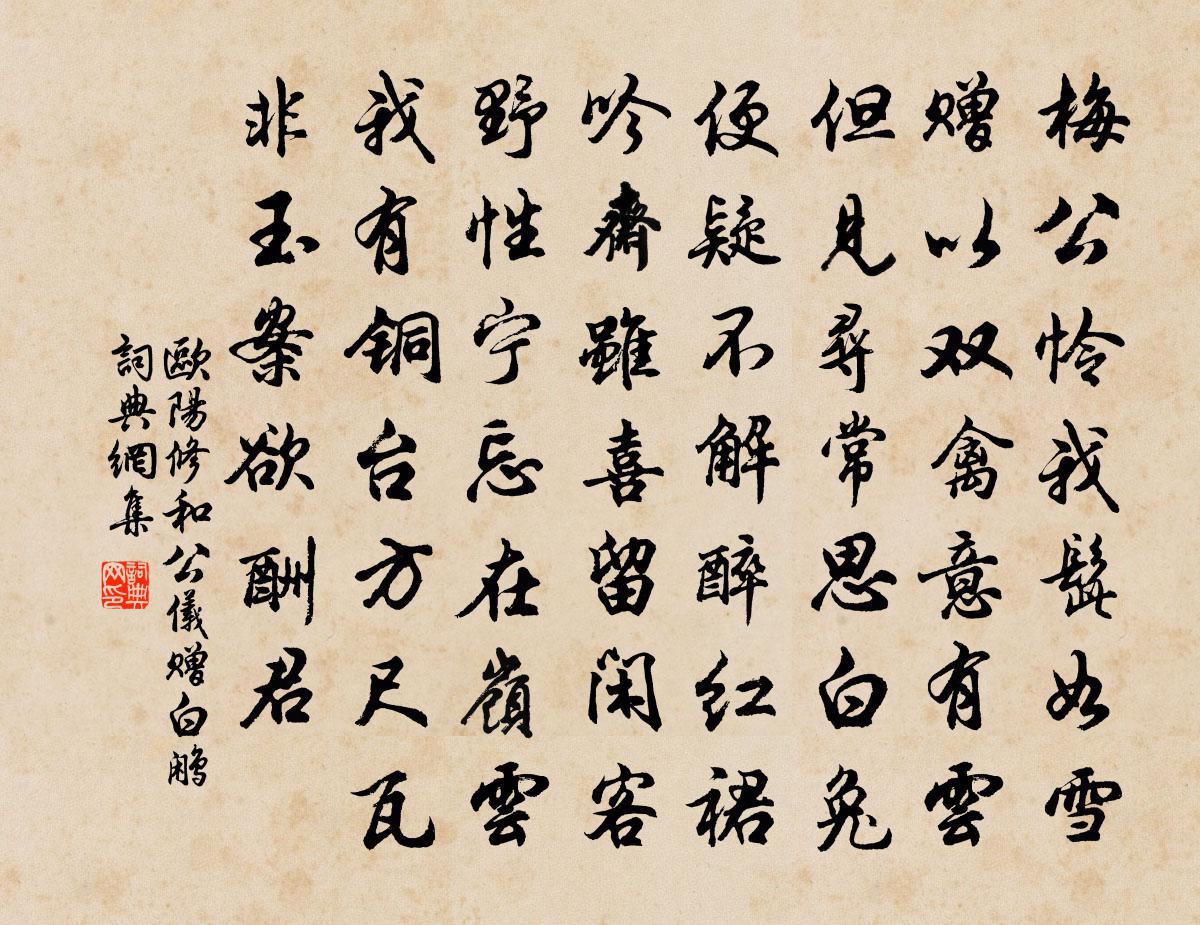 梅公怜我髭如雪
赠以双禽意有雲
但见尋常思白兔
便疑不解醉红裙
吟齋雖喜留闲客
野性宁忘在嶺雲
我有铜台方尺瓦
非玉案欲酬君
歐陽修和公儀赠白鹇
詞典網集
詞典网印